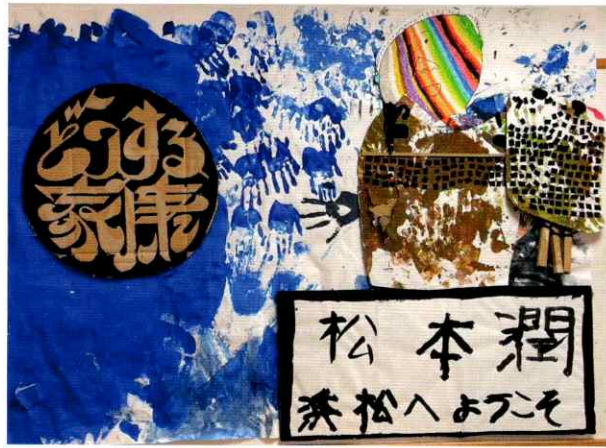 どうする
家康
松本潤
浜松へようこそ